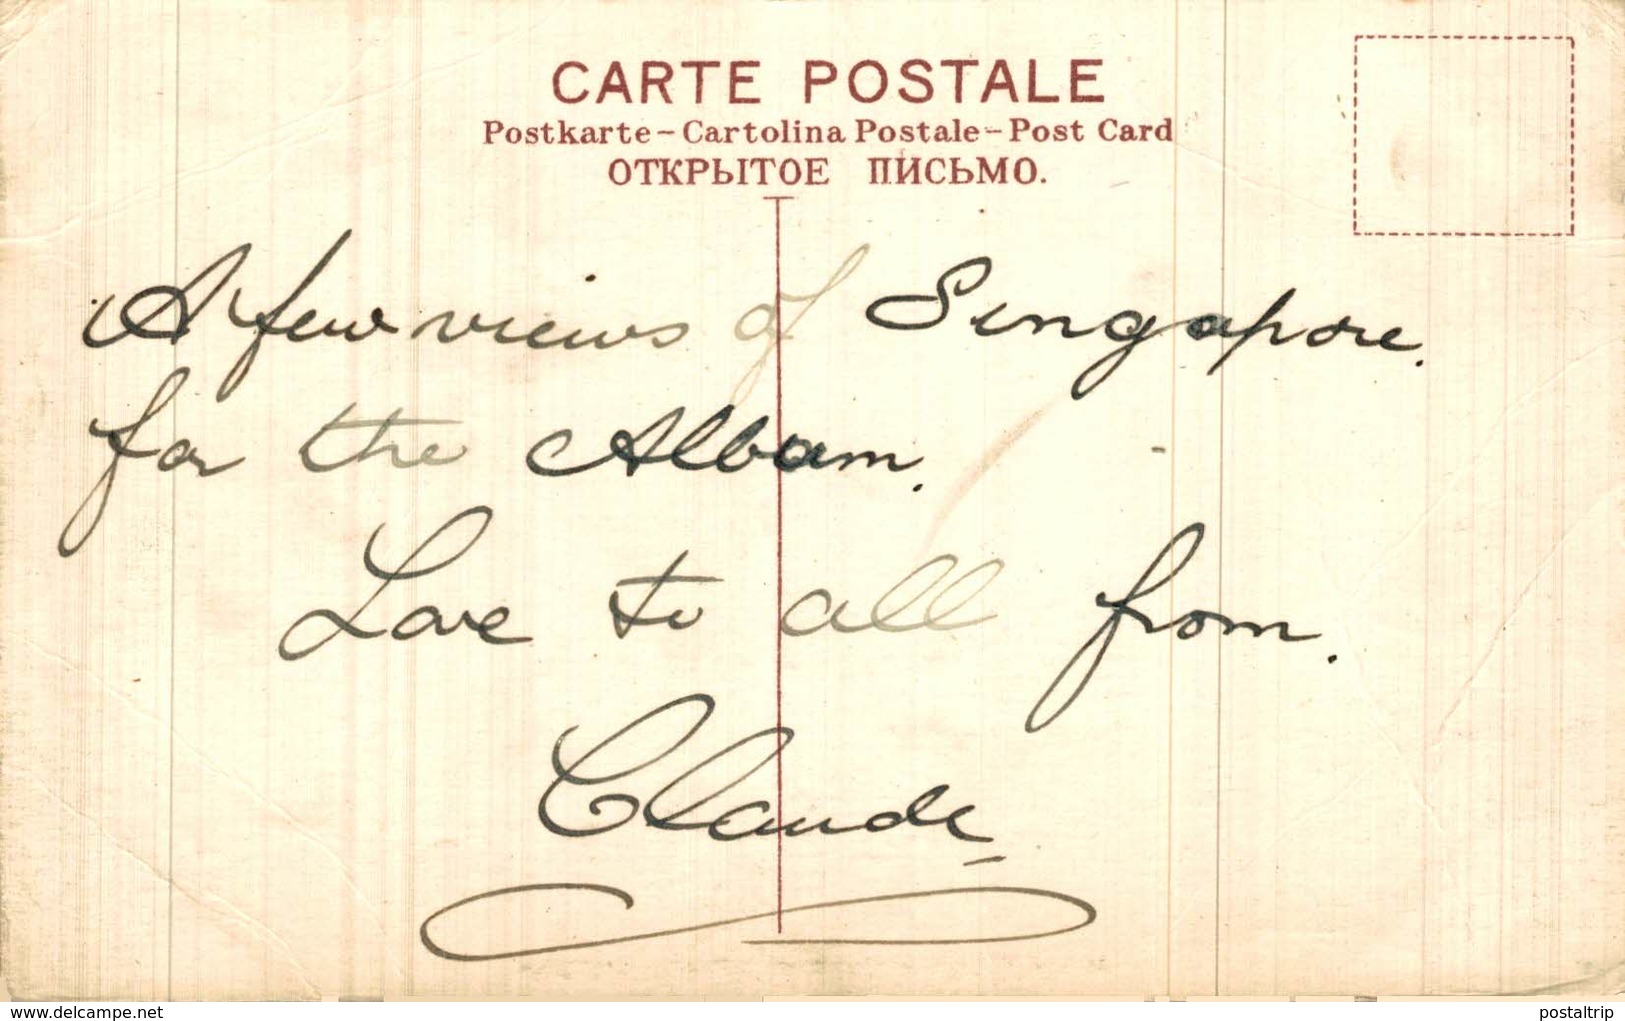 CARTE POSTALE
Postkarte – Cartolina Postale – Post Card
ОТКРЫТОЕ ПИСЬМО.
A few views of Singapore.
for the Album.
Love to all from.
Claude
www.delcampe.net
postaltrip